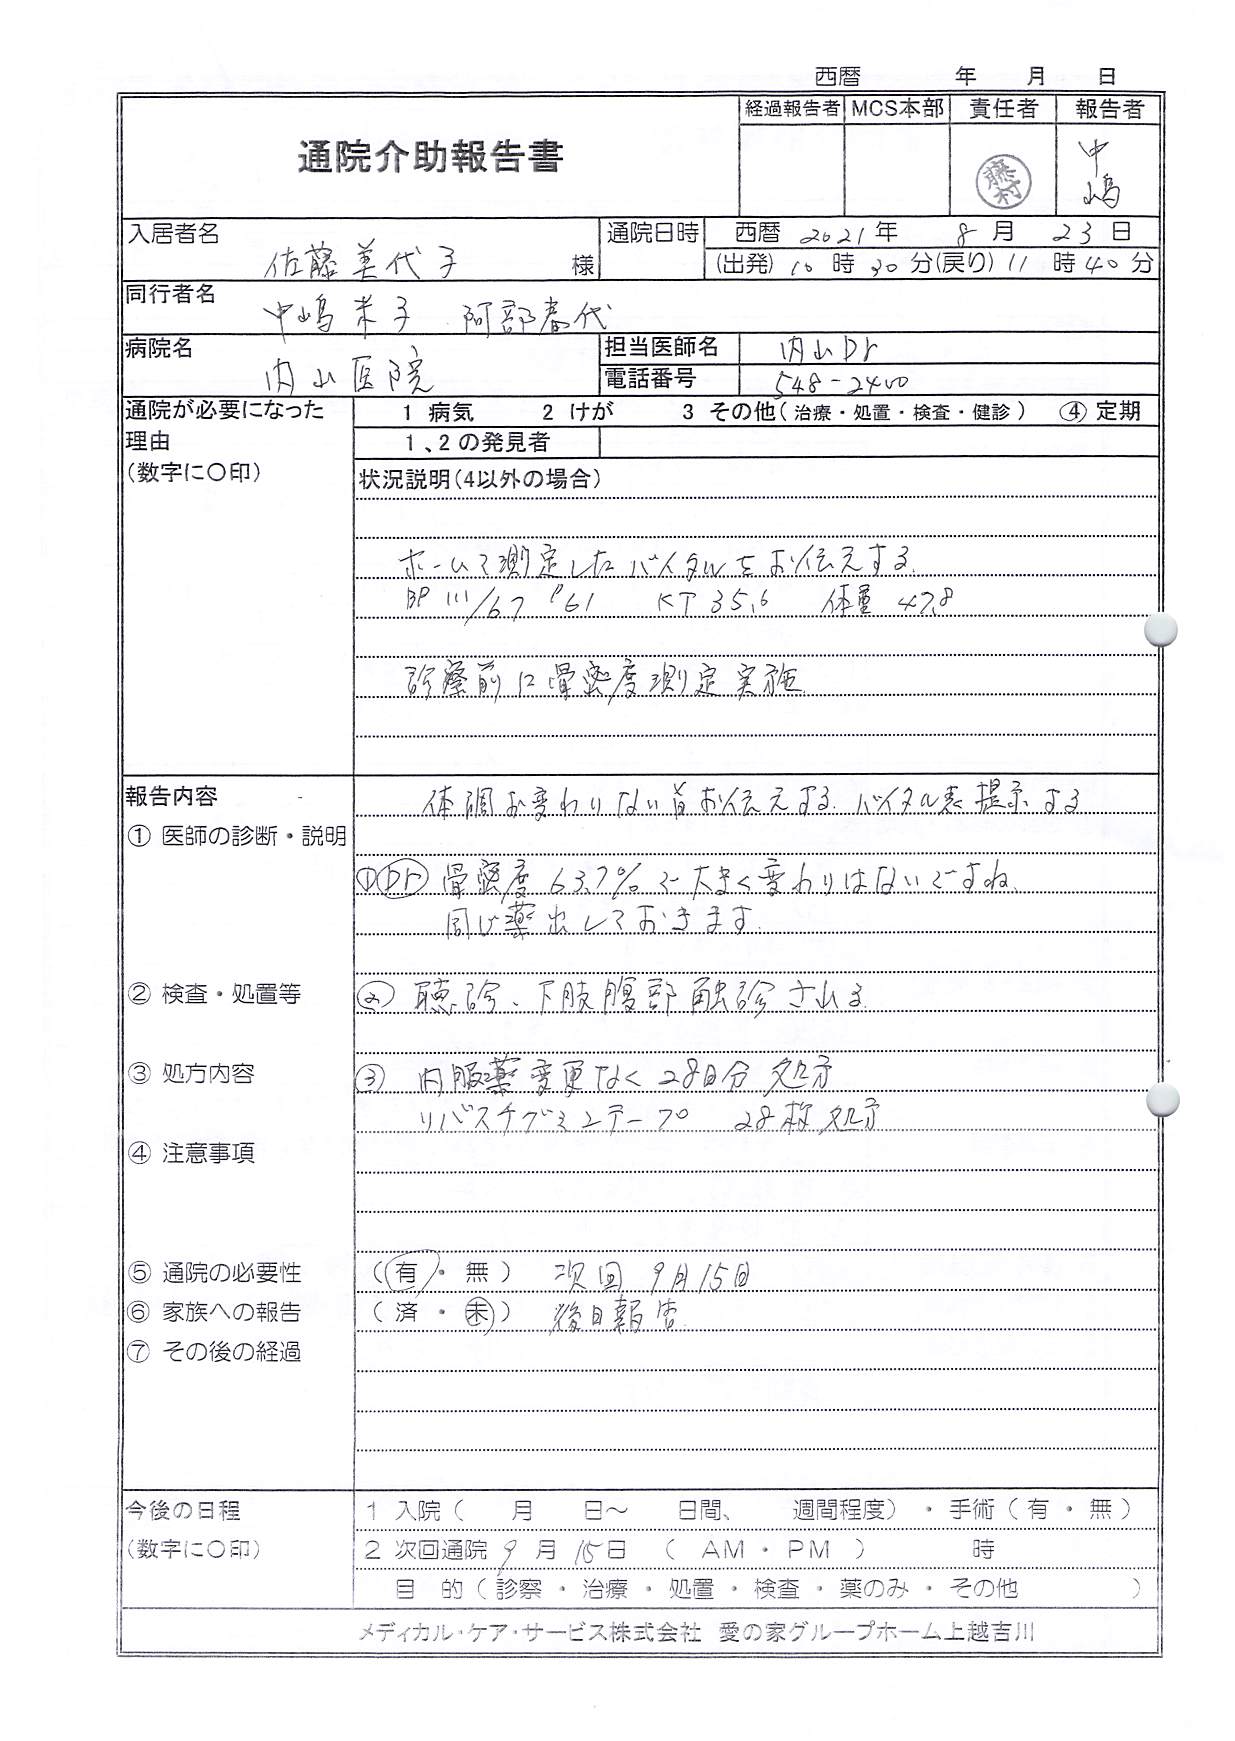 西暦　　年　　月　　日
経過報告者 MCS本部 責任者 報告者
通院介助報告書
藤村
中嶋
入居者名 佐藤美代子 様
通院日時 西暦 2021年 8月 23日
(出発) 10時30分(戻り) 11時40分
同行者名 中嶋 阿部春代
病院名 内山医院
担当医師名 内山Dr
電話番号 548-2400
通院が必要になった理由
(数字に〇印)
1 病気 2 けが 3 その他(治療・処置・検査・健診) ④ 定期
1、2の発見者
状況説明(4以外の場合)
ホームで測定したバイタルをお伝えする。
BP 111/67 P61 KT 35.6 体重 47.8
診療前に骨密度測定実施
報告内容
体調お変わりない旨お伝えする。バイタル表提示する
① 医師の診断・説明
①Dr 骨密度 63.7%で大きく変わりはないですね。
同じ薬出しておきます。
② 検査・処置等
② 聴診、下肢腹部触診される。
③ 処方内容
③ 内服薬変更なく28日分処方
リバスチグミンテープ 28枚処方
④ 注意事項
⑤ 通院の必要性 (有・無) 次回 9月15日
⑥ 家族への報告 (済・未) 後日報告
⑦ その後の経過
今後の日程
(数字に〇印)
1 入院( 月 日〜 日間、 週間程度)・手術(有・無)
2 次回通院 9月15日 ( AM・PM ) 時
目 的(診察・治療・処置・検査・薬のみ・その他 )
メディカル・ケア・サービス株式会社 愛の家グループホーム上越吉川